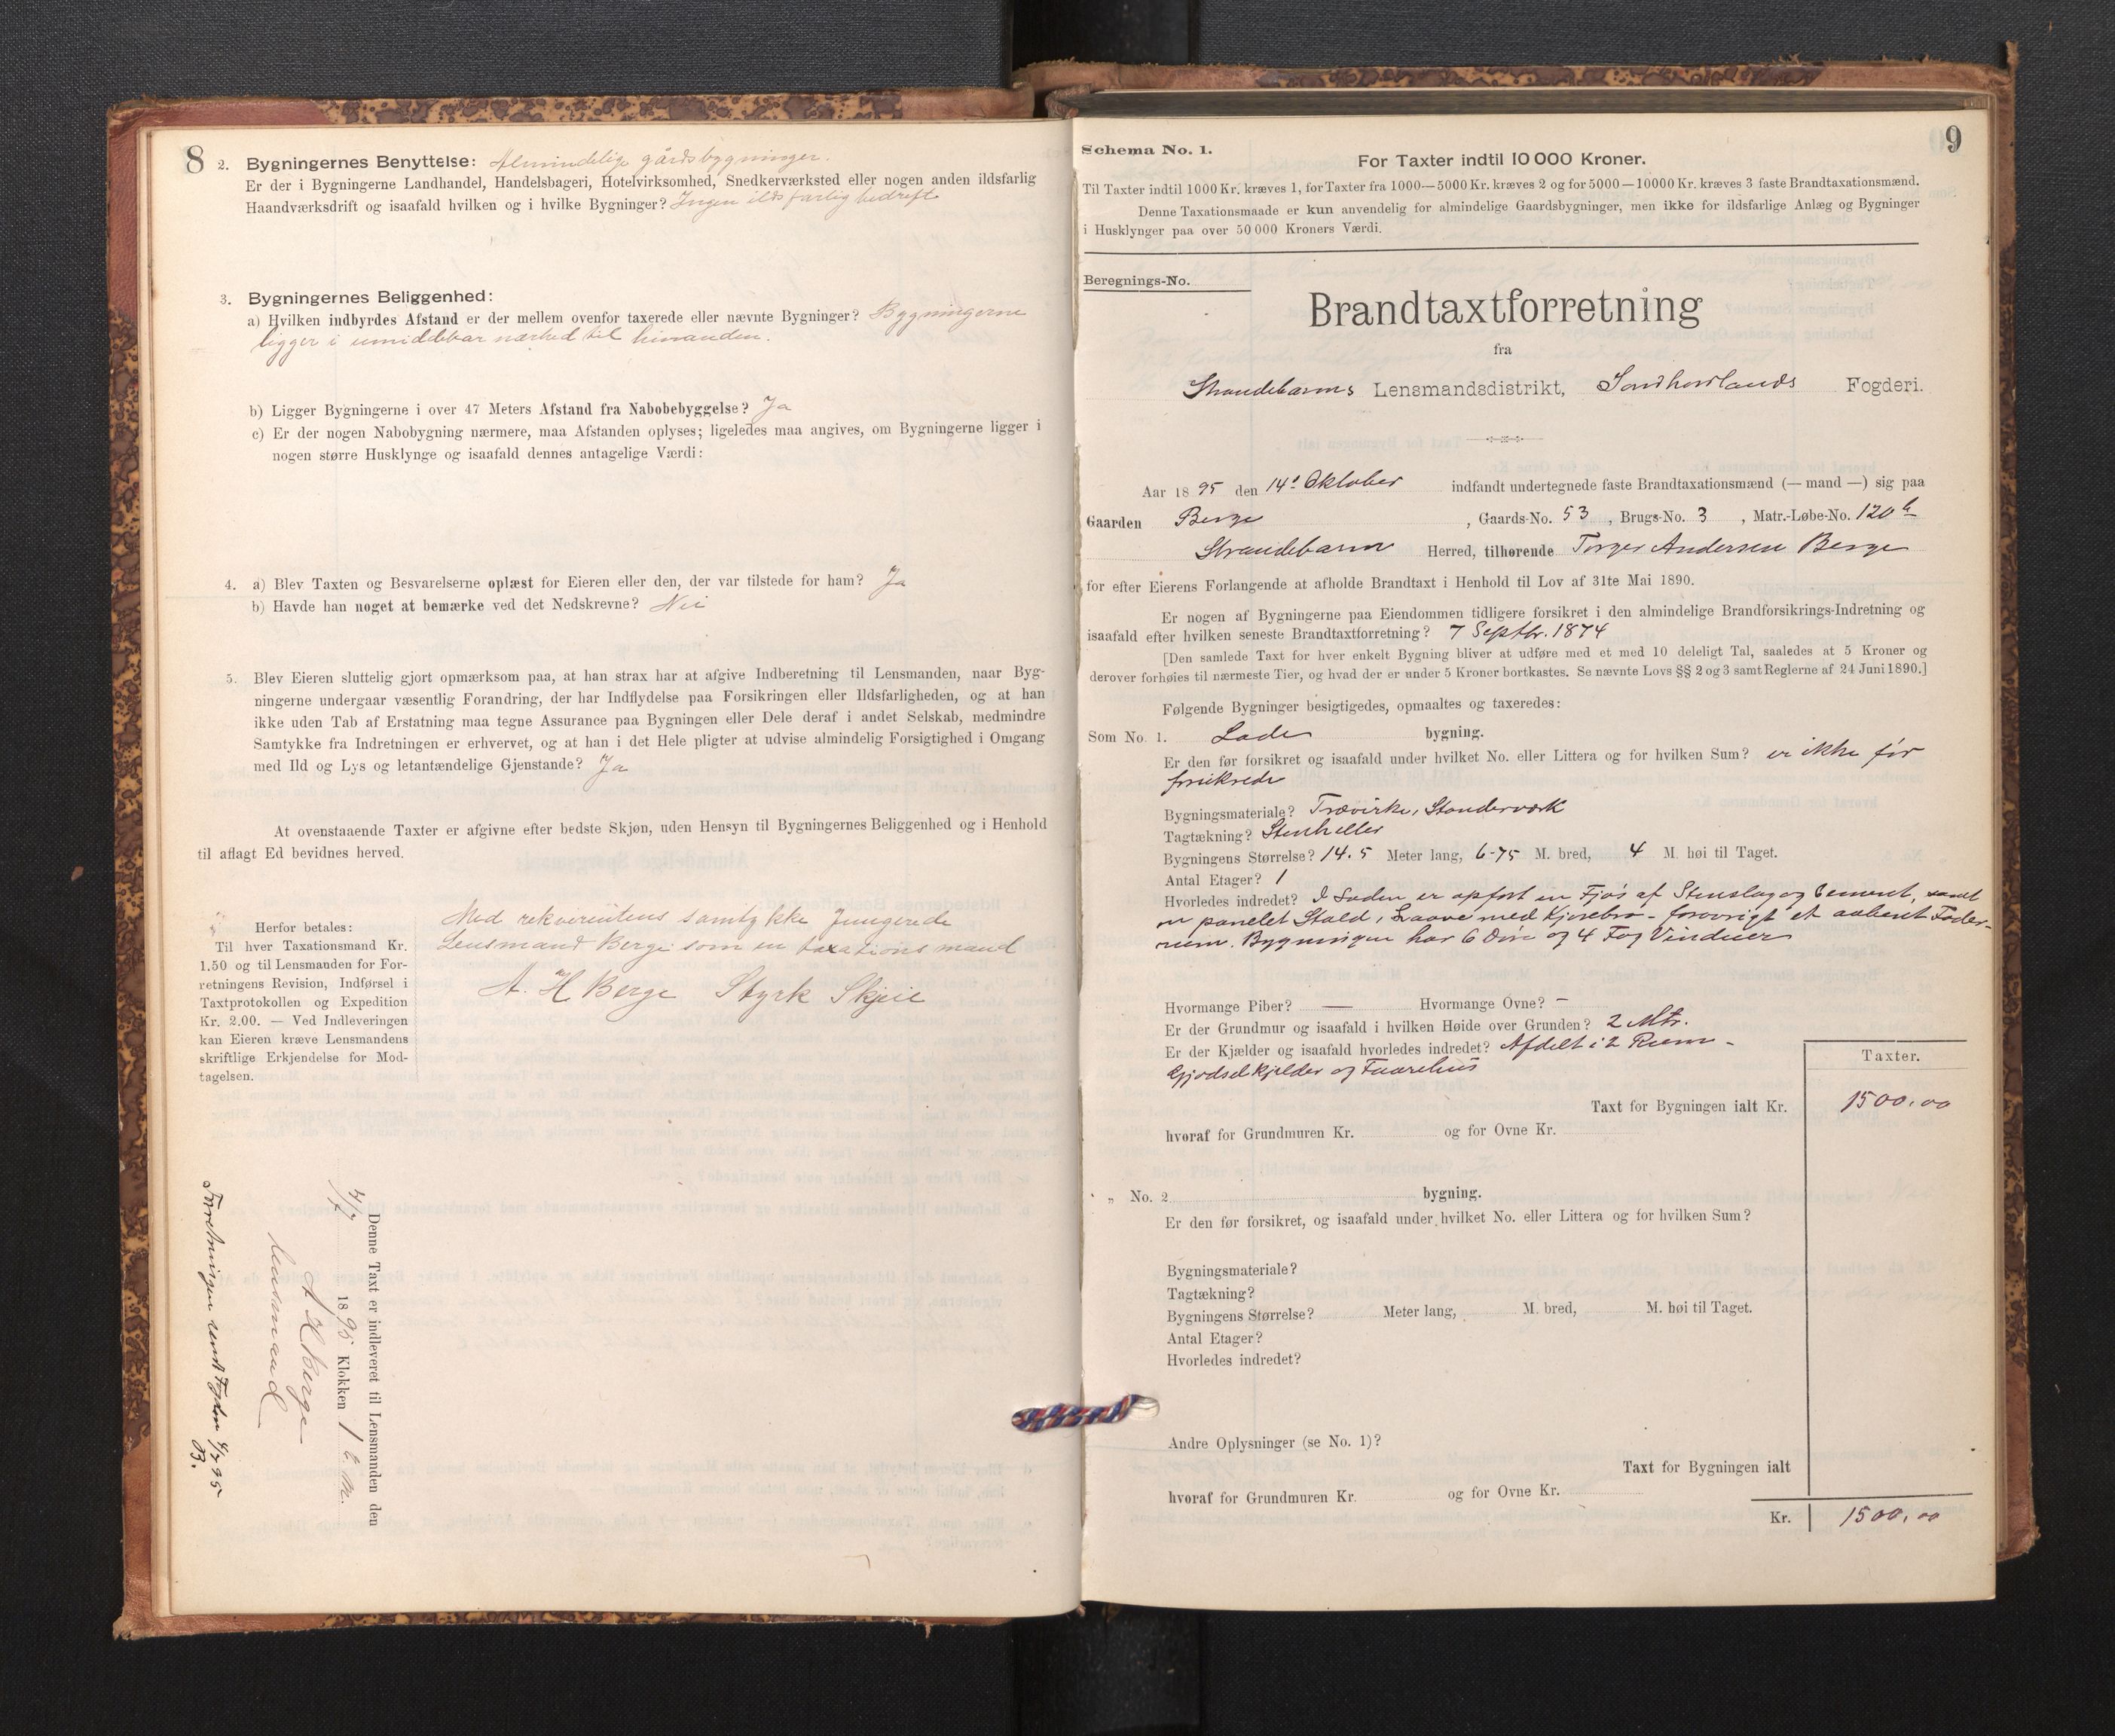 8
2. Bygningernes Benyttelse: Almindelige gårdsbygninger.
Er der i Bygningerne Landhandel, Handelsbageri, Hotelvirksomhed, Snedkerværksted eller nogen anden ildsfarlig
Haandværksdrift og isaafald hvilken og i hvilke Bygninger? Ingen ildsfarlig bedrift
3. Bygningernes Beliggenhed:
a) Hvilken indbyrdes Afstand er der mellem ovenfor taxerede eller nævnte Bygninger? Bygningerne
ligger i umiddelbar nærhed til hinanden.
b) Ligger Bygningerne i over 47 Meters Afstand fra Nabobebyggelse? Ja
c) Er der nogen Nabobygning nærmere, maa Afstanden oplyses; ligeledes maa angives, om Bygningerne ligger i
nogen større Husklynge og isaafald dennes antagelige Værdi:
4. a) Blev Taxten og Besvarelserne oplæst for Eieren eller den, der var tilstede for ham? Ja
b) Havde han noget at bemærke ved det Nedskrevne? Nei
5. Blev Eieren sluttelig gjort opmærksom paa, at han strax har at afgive Indberetning til Lensmanden, naar Byg-
ningerne undergaar væsentlig Forandring, der har Indflydelse paa Forsikringen eller Ildsfarligheden, og at han
ikke uden Tab af Erstatning maa tegne Assurance paa Bygningen eller Dele deraf i andet Selskab, medmindre
Samtykke fra Indretningen er erhvervet, og at han i det Hele pligter at udvise almindelig Forsigtighed i Omgang
med Ild og Lys og letantændelige Gjenstande? Ja
At ovenstaaende Taxter er afgivne efter bedste Skjøn, uden Hensyn til Bygningernes Beliggenhed og i Henhold
til aflagt Ed bevidnes herved.
Herfor betales:
Til hver Taxationsmand Kr.
1.50 og til Lensmanden for For-
retningens Revision, Indførsel i
Taxtprotokollen og Expedition
Kr. 2.00. — Ved Indleveringen
kan Eieren kræve Lensmandens
skriftlige Erkjendelse for Mod-
tagelsen.
Med rekvirentens samtykke fungerede
Lensmand Berge som en taxationsmand
A. H Berge Styrk Skjeie
Denne Taxt er indleveret til Lensmanden den
4/7 1895 Klokken 1 E. M.
A H Berge
lensmand
Forretningen sendt Fogden 4/7 95
B.
9
Schema No. 1.
For Taxter indtil 10 000 Kroner.
Til Taxter indtil 1000 Kr. kræves 1, for Taxter fra 1000—5000 Kr. kræves 2 og for 5000—10000 Kr. kræves 3 faste Brandtaxationsmænd.
Denne Taxationsmaade er kun anvendelig for almindelige Gaardsbygninger, men ikke for ildsfarlige Anlæg og Bygninger
i Husklynger paa over 50 000 Kroners Værdi.
Beregnings-No.
Brandtaxtforretning
fra
Strandebarms Lensmandsdistrikt, Søndhordlands Fogderi.
Aar 1895 den 14' Oktober indfandt undertegnede faste Brandtaxationsmænd (— mand —) sig paa
Gaarden Berge, Gaards-No. 53, Brugs-No. 3, Matr.-Løbe-No. 120 b
Strandebarm Herred, tilhørende Torger Andersen Berge
for efter Eierens Forlangende at afholde Brandtaxt i Henhold til Lov af 31te Mai 1890.
Er nogen af Bygningerne paa Eiendommen tidligere forsikret i den almindelige Brandforsikrings-Indretning og
isaafald efter hvilken seneste Brandtaxtforretning? 7 Septbr. 1874
[Den samlede Taxt for hver enkelt Bygning bliver at udføre med et med 10 deleligt Tal, saaledes at 5 Kroner og
derover forhøies til nærmeste Tier, og hvad der er under 5 Kroner bortkastes. Se nævnte Lovs §§ 2 og 3 samt Reglerne af 24 Juni 1890.]
Følgende Bygninger besigtigedes, opmaaltes og taxeredes:
Som No. 1. Lade bygning.
Er den før forsikret og isaafald under hvilket No. eller Littera og for hvilken Sum? er ikke før
forsikrede
Bygningsmateriale? Trævirke, Standerværk
Tagtækning? Stenheller
Bygningens Størrelse? 14.5 Meter lang, 6-75 M. bred, 4 M. høi til Taget.
Antal Etager? 1
Hvorledes indredet? I Laden er opført en Fjøs af Stenslag og Cement, samt
en panelet Stald, Laave med kjørebro - forøvrigt et aabent Foder-
rum. Bygningen har 6 Døre og 4 Fag Vinduer
Hvormange Piber? — Hvormange Ovne? —
Er der Grundmur og isaafald i hvilken Høide over Grunden? 2 Mtr.
Er der Kjælder og isaafald hvorledes indredet? Afdelt i 2 Rum -
Gjødselkjelder og Faarehus
Taxter.
Taxt for Bygningen ialt Kr. 1500,00
hvoraf for Grundmuren Kr. og for Ovne Kr.
„ No. 2 bygning.
Er den før forsikret, og isaafald under hvilket No. eller Littera og for hvilken Sum?
Bygningsmateriale?
Tagtækning?
Bygningens Størrelse? Meter lang, M. bred, M. høi til Taget.
Antal Etager?
Hvorledes indredet?
Andre Oplysninger (se No. 1)?
Taxt for Bygningen ialt
hvoraf for Grundmuren Kr. og for Ovne Kr.
Kr. 1500,00